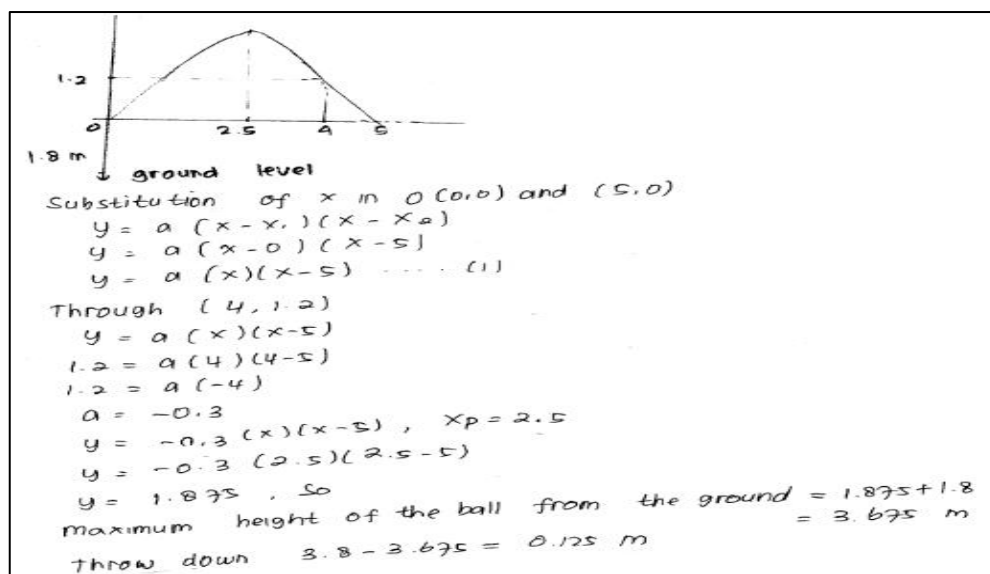 1.2
0 2.5 4 5
1.8 m
ground level
Substitution of x in O (0,0) and (5,0)
y = a (x - x₁)(x - x₂)
y = a (x - 0)(x - 5)
y = a (x)(x - 5) .... (1)
Through (4, 1.2)
y = a (x)(x - 5)
1.2 = a (4)(4 - 5)
1.2 = a (-4)
a = -0.3
y = -0.3 (x)(x - 5), xp = 2.5
y = -0.3 (2.5)(2.5 - 5)
y = 1.875, so
maximum height of the ball from the ground = 1.875 + 1.8
= 3.675 m
Throw down 3.8 - 3.675 = 0.125 m